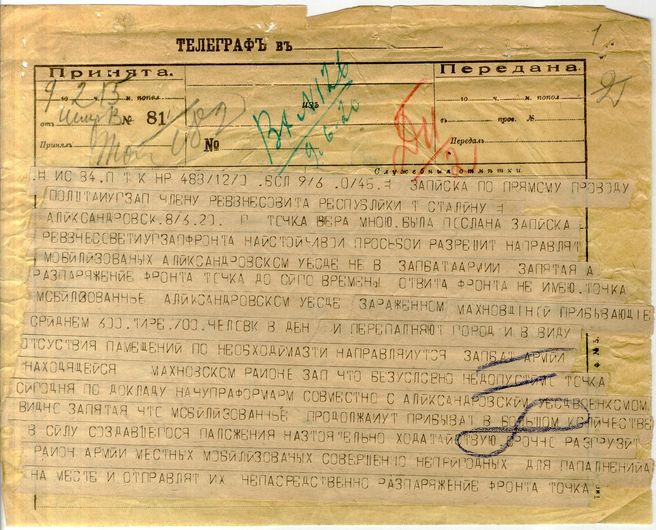 ТЕЛЕГРАФЪ ВЪ
1
Принята.
Передана.
9 го 2 ч. 15 м. попол.
го ч. м. попол.
отъ № 81
изъ
въ пров. №
Принялъ
№
Передалъ
ВХ N 126
9.6.20
Служебныя отмѣтки
Н ИС 84. П Т К НР 488/12/0 .ВСЛ 9/6 .0/45.= ЗАПИСКА ПО ПРЯМСМУ ПРОВОДУ
ЧЛЕНУ РЕВВЗНЕСОВИТА РЕСПУБЛИКИ Т СТАЛИНУ =
АЛИКСАНДРОВСК.8/6.20. Р ТСЧКА ВЕРА МНОЮ.БЫЛА ПОСЛАНА ЗАПИСКА
НАЙСТОЙЧИВОЙ ПРОСЬБОЙ РАЗРЕШИТ НАПРАВЛЯТ
МОБИЛИЗОВАНЫХ АЛИКСАНДРОВСКОМ УЕСДЕ НЕ В ЗАПБАТААРИИ ЗАПЯТАЯ А
РАЗПАРЯЖЕНИЕ ФРОНТА ТОЧКА ДО СИГО ВРЕМЕНЫ ОТВИТА ФРОНТА НЕ ИМЕЮ.ТОЧКА
МОБИЛИЗОВАННЬЕ АЛИКСАНДРОВСКОМ УЕСДЕ ЗАРАЖЕННОМ МАХНОВЩИНОЙ ПРИБЫВАЮЩИЕ
СРИДНЕМ 600.ТИРЕ.700.ЧЕЛСВК В ДЕН И ПЕРЕПАЛНЯЮТ ГОРОД И В ВИДУ
ОТСУСТВИЯ ПАМЕЩЕНИЙ ПО НЕОБХОДИМАЗТИ НАПРАВЛЯИУТСЯ ЗАПБАТ АРМИИ
НАХОДЯЩЕЙСЯ МАХНОВСКОМ РАЙОНЕ ЗАП ЧТО БЕЗУСЛСВНО НЕДОПУСТИТЕ ТСЧКА
СИГОДНЯ ПО ДОКЛАДУ НАЧУПРАФОРМАРМ СОВМЕСТНО С АЛИКСАНДРОВСКИМ УЕСДВОЕНКСМОМ
ВИДНС ЗАПЯТАЯ ЧТС МСБИЛИЗОВАННЬЕ ПРОДОЛЖАИУТ ПРИБЫВАТ В БОЛШОМ КОЛИЧЕСТВЕ
В СИЛУ СОЗДАВШЕГОСЯ ПАЛСЖЕНИЯ НАЗТОЯТЕЛЬНО ХОДАТАЙСТВУЮ СРОЧНС РАЗГРУЗИТ
РАИОН АРМИИ МЕСТНЫХ МОБИЛИЗОВАНЫХ СОВЕРШЕНО НЕПРИГОДНЫХ ДЛЯ ПАПАЛНЕНИЯ
НА МЕСТЕ И ОТПРАВЛЯТ ИХ НЕПАСРЕДСТВЕНО РАЗПАРЯЖЕНИЕ ФРОНТА ТОЧКА